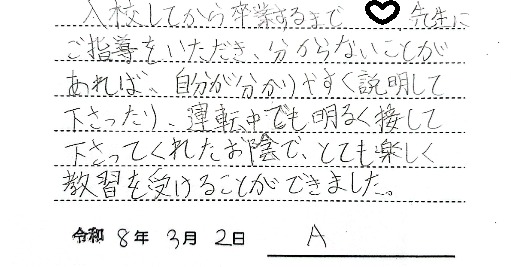 入校してから卒業するまで ♡ 先生に
ご指導をいただき、分からないことが
あれば、自分が分かりやすく説明して
下さったり、運転中でも明るく接して
下さってくれたお陰で、とても楽しく
教習を受けることができました。
令和 8年 3月 2日 A